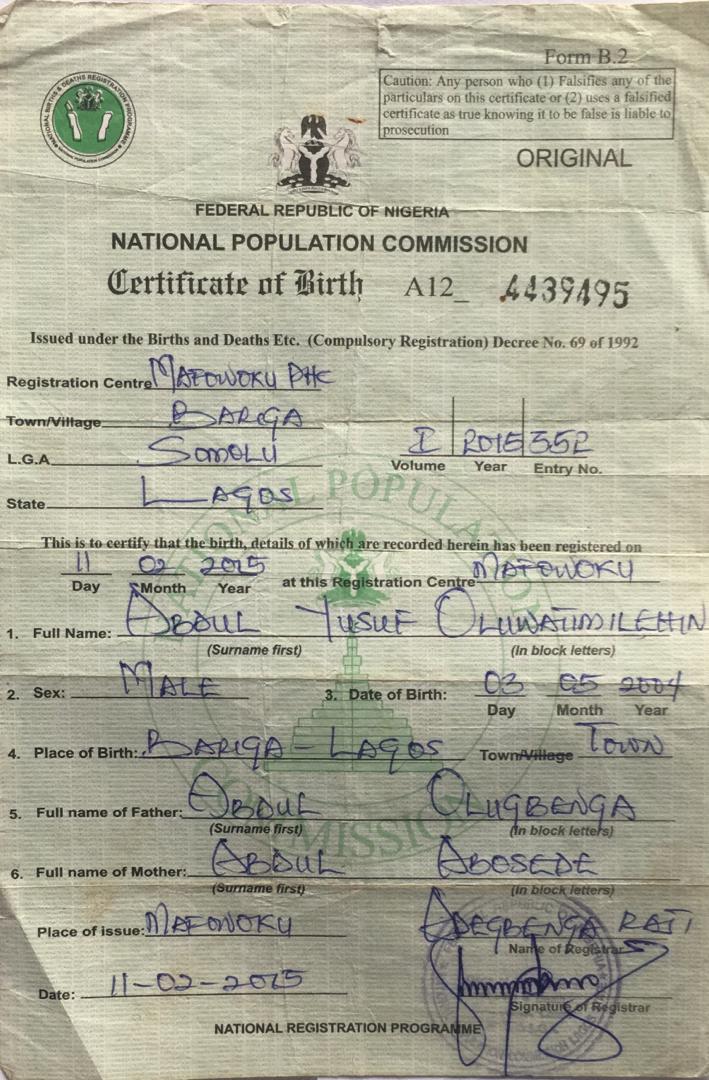 Form B.2
Caution: Any person who (1) Falsifies any of the
particulars on this certificate or (2) uses a falsified
certificate as true knowing it to be false is liable to
prosecution
ORIGINAL
NATIONAL BIRTHS & DEATHS REGISTRATION PROGRAMME
FEDERAL REPUBLIC OF NIGERIA
NATIONAL POPULATION COMMISSION
Certificate of Birth A12_ 4439495
Issued under the Births and Deaths Etc. (Compulsory Registration) Decree No. 69 of 1992
Registration Centre MAFOWOKU PHC
Town/Village BARIGA
L.G.A SOMOLU
I 2015 352
Volume Year Entry No.
State LAGOS
NATIONAL POPULATION COMMISSION
This is to certify that the birth, details of which are recorded herein has been registered on
11 02 2015 at this Registration Centre MAFOWOKU
Day Month Year
1. Full Name: ABDUL YUSUF OLUWATIMILEHIN
(Surname first) (In block letters)
2. Sex: MALE 3. Date of Birth: 03 05 2004
Day Month Year
4. Place of Birth: BARIGA - LAGOS Town/Village TOWN
5. Full name of Father: ABDUL OLUGBENGA
(Surname first) (In block letters)
6. Full name of Mother: ABDUL ABOSEDE
(Surname first) (In block letters)
Place of issue: MAFOWOKU ADEGBENGA RAJI
Name of Registrar
Date: 11-02-2015
Signature of Registrar
NATIONAL REGISTRATION PROGRAMME